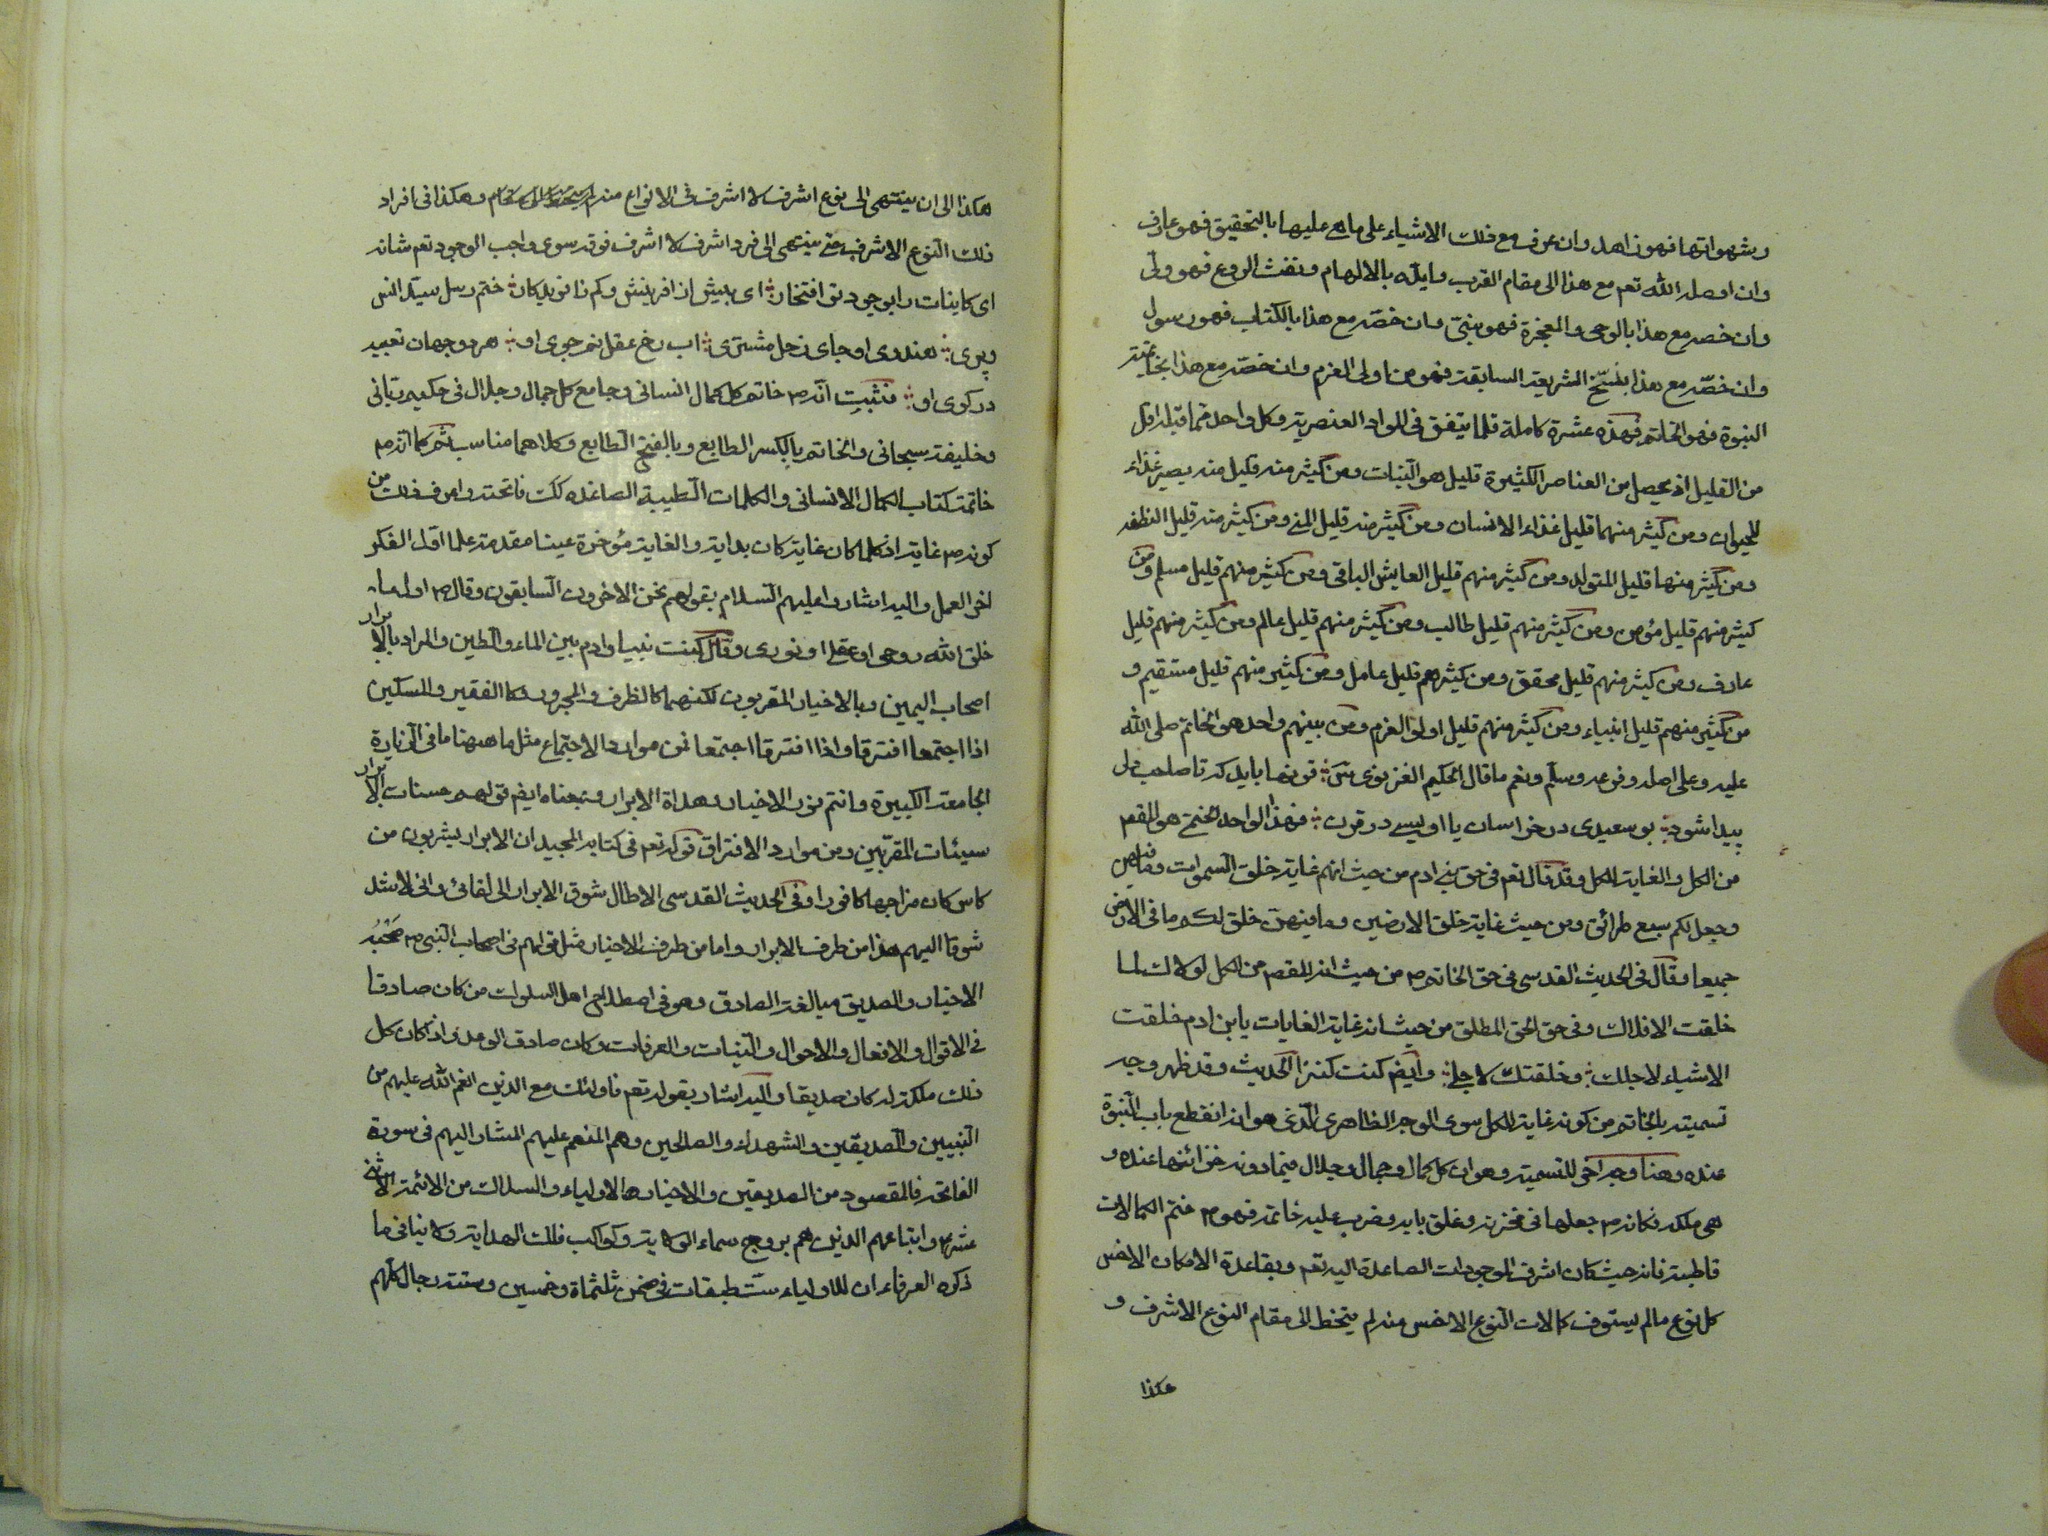 وشهواتها فهو زاهد وان عرف مع ذلك الاشياء على ماهى عليها بالتحقيق فهو عارف
وان اوصله الله تعم مع هذا الى مقام القرب وايده بالالهام ونفث الروع فهو ولى
وان خصه مع هذا بالوحى والمعجزة فهو نبى وان خصه مع هذا بالكتاب فهو رسول
وان خصه مع هذا بنسخ الشريعة السابقة فهو من اولى العزم وان خصه مع هذا بخاتمية
النبوة فهو الخاتم فهذه عشرة كاملة قلما يتفق فى المواد العنصرية وكل واحد مما قبله اقل
من القليل اذ يحصل من العناصر الكثيرة قليل هو النبات ومن كثير منه قليل منه يصير غذاء
للحيوان ومن كثير منهما قليل غذاء الانسان ومن كثير منه قليل المنى ومن كثير منه قليل النطفه
ومن كثير منها قليل المتولد ومن كثير منهم قليل العايش الباقى ومن كثير منهم قليل مسلم ومن
كثير منهم قليل مؤمن ومن كثير منهم قليل طالب ومن كثير منهم قليل عالم ومن كثير منهم قليل
عارف ومن كثير منهم قليل محقق ومن كثيرهم قليل عامل ومن كثير منهم قليل مستقيم و
من كثير منهم قليل انبياء ومن كثير منهم قليل اولو العزم ومن بينهم واحد هو الخاتم صلى الله
عليه وعلى اصله وفرعه وسلم ونعم ما قال الحكيم الغزنوى قرنها بايد كه تا صاحب دلى
پيدا شود بو سعيدى در خراسان يا اويسى در قرن فهذا الواحد الختم هو المقصم
من الكل والغاية للكل وقد قال تعم فى حق بنى ادم من حيث انهم غاية خلق السموات وما فيهن
وجعل لكم سبع طرائق ومن حيث غاية خلق الارضين وما فيهن خلق لكم ما فى الارض
جميعا وقال فى الحديث القدسى فى حق الخاتم ص من حيث انه المقصم من الكل لولاك لما
خلقت الافلاك وفى حق الحق المطلق من حيث انه غاية الغايات يابن ادم خلقت
الاشياء لاجلك وخلقتك لاجلى وايضم كنت كنزا الحديث وقد ظهر وجه
تسميته بالخاتم من كونه غاية للكل سوى الوجه الظاهرى الذى هو انه انقطع باب النبوة
عنده وهنا وجه اخر للتسمية وهو ان كل كمال وجمال وجلال فيما دونه خزائنها عنده و
هى ملكه فكانه ص جعلها فى مخزن وغلق بابه وضرب عليه خاتمه فهو ص ختم الكمالات
قاطبة فانه حيث كان اشرف الموجودات الصاعدة اليه تعم وبقاعدة الامكان الاخس
كل نوع مالم يستوف كمالات النوع الاخس منه لم يتخط الى مقام النوع الاشرف و
هكذا
هكذا الى ان ينتهى الى نوع اشرف لا اشرف فى الانواع منه وهكذا فى افراد
ذلك النوع الاشرف حتى ينتهى الى فرد اشرف لا اشرف فوقه سوى واجب الوجود تعم شانه
اى كاينات را بوجود تو افتخار اى بيش از افرينش وكم ز افريدكار ختم رسل سيد انس
وپرى هندوى او جاى زحل مشترى اب رخ عقل نم جوى او هر دو جهان تعبيه
در كوى او فثبت انه ص خاتم كل كمال انسانى وجامع كل جمال وجلال فى حكيم ربانى
وخليفة سبحانى والخاتم بالكسر الطابع وبالفتح الطابع وكلاهما مناسب ثم كما انه ص
خاتمة كتاب الكمال الانسانى والكلمات الطيبة الصاعده كك فاتحته واعرف ذلك من
كونه ص غاية اذ كلما كان غاية كان بداية والغاية مؤخرة عينا مقدمة علما اول الفكر
اخر العمل واليه اشاروا عليهم السلام بقولهم نحن الاخرون السابقون وقال ص اول ما
خلق الله روحى او عقلى او نورى وقال كنت نبيا وادم بين الماء والطين والمراد بالابرار
اصحاب اليمين وبالاخيار المقربون لكنهما كالظرف والمجرور وكالفقير والمسكين
اذا اجتمعا افترقا واذا افترقا اجتمعا فمن موارد الاجتماع مثل ما ههنا ما فى الزيارة
الجامعة الكبيرة وانتم نور الاخيار وهداة الابرار ومعناه ايضم قولهم حسنات الابرار
سيئات المقربين ومن موارد الافتراق قوله تعم فى كتابه المجيد ان الابرار يشربون من
كاس كان مزاجها كافورا وفى الحديث القدسى الاطال شوق الابرار الى لقائى وانى لاشد
شوقا اليهم هذا من طرف الابرار واما من طرف الاخيار مثل قولهم فى اصحاب النبى ص صحبه
الاخيار والصديق مبالغة الصادق وهو فى اصطلاح اهل السلوك من كان صادقا
فى الاقوال والافعال والاحوال والنيات والعرفات وكان صادق الوعد واذا كان كل
ذلك ملكة له كان صديقا واليه اشار بقوله تعم فاولئك مع الذين انعم الله عليهم من
النبيين والصديقين والشهداء والصالحين وهم المنعم عليهم المشار اليهم فى سورة
الفاتحه فالمقصود من الصديقين والاخيار هم الاولياء والسلاك من الائمة الاثنى
عشر واتباعهم الذين هم بروج سماء الولاية وكواكب فلك الهداية ولا ينافى ما
ذكره العرفاء ان للاولياء ست طبقات فى ضمن ثلثماة وخمسين وستة رجال كلهم